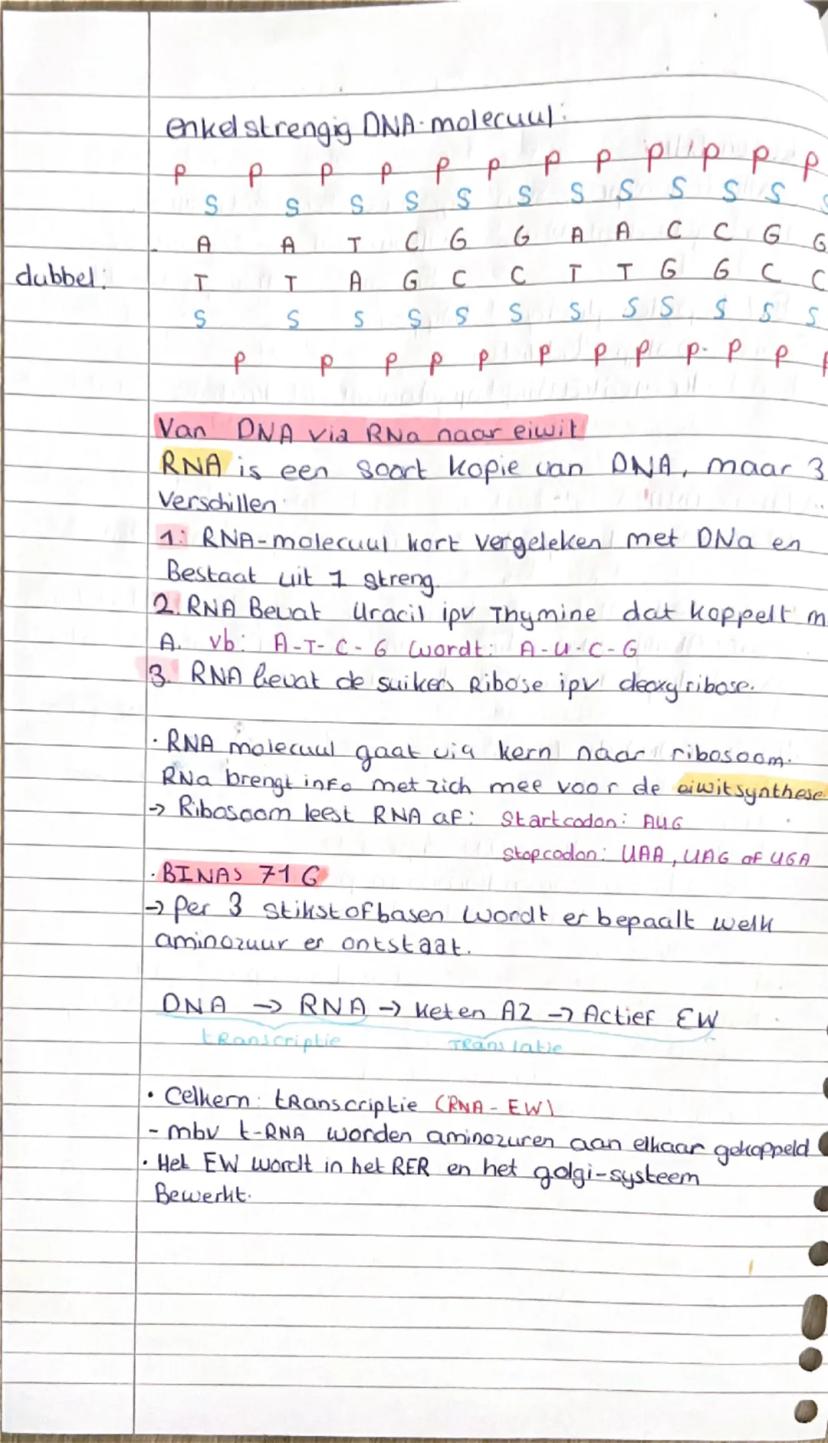 enkelstrengig DNA-molecuul:
P P P P P P P P P P P P
S S S S S S S S S S S S
A A T C G G A A C C G G
dubbel: T T A G C C T T G G C C
S S S S S S S S S S S S
P P P P P P P P P P P
Van DNA via RNa naar eiwit
RNA is een soort kopie van DNA, maar 3
verschillen
1: RNA-molecuul kort vergeleken met DNa en
Bestaat uit 1 streng.
2. RNA Bevat Uracil ipv Thymine dat koppelt m
A. vb: A-T-C-G wordt: A-U-C-G
3. RNA bevat de suikers Ribose ipv deoxyribose.
· RNA molecuul gaat via kern naar ribosoom.
RNa brengt info met zich mee voor de eiwitsynthese
→ Ribosoom leest RNA af: Startcodon: AUG
stopcodon: UAA, UAG of UGA
· BINAS 71 G
→ Per 3 stikstofbasen wordt er bepaalt welk
aminozuur er ontstaat.
DNA → RNA → keten AZ → Actief EW
tRanscriptie TRanslatie
· Celkern: tRanscriptie (RNA-EW)
- mbv t-RNA worden aminozuren aan elkaar gekoppeld
· Het EW wordt in het RER en het golgi-systeem
Bewerkt.